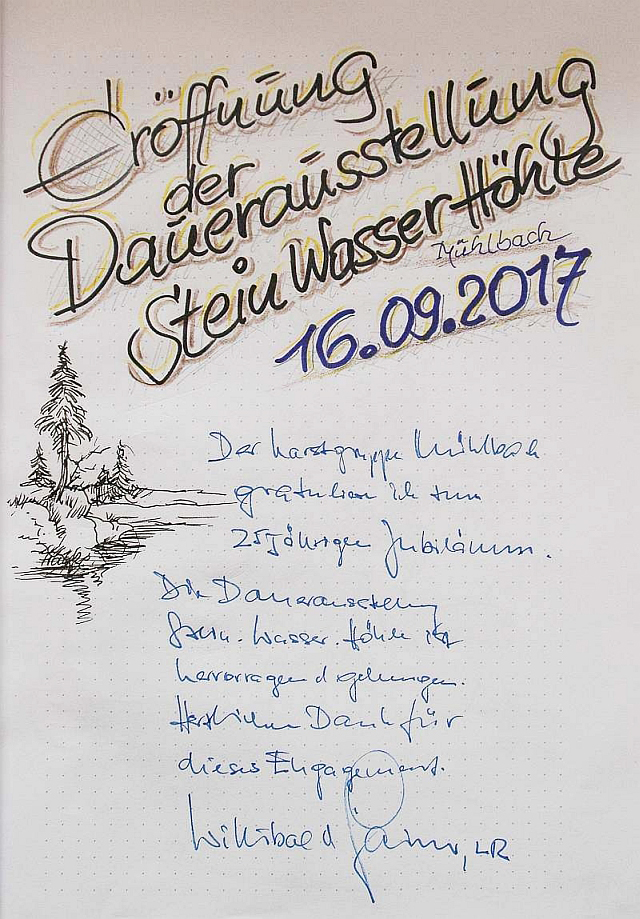 Eröffnung
der
Dauerausstellung
Stein Wasser Höhle
Mühlbach
16.09.2017
Der Karstgruppe Mühlbach
gratuliere ich zum
25jährigen Jubiläum.
Die Dauerausstellung
Stein. Wasser. Höhle ist
hervorragend gelungen.
Herzlichen Dank für
dieses Engagement.
Willibald Gailler, LR